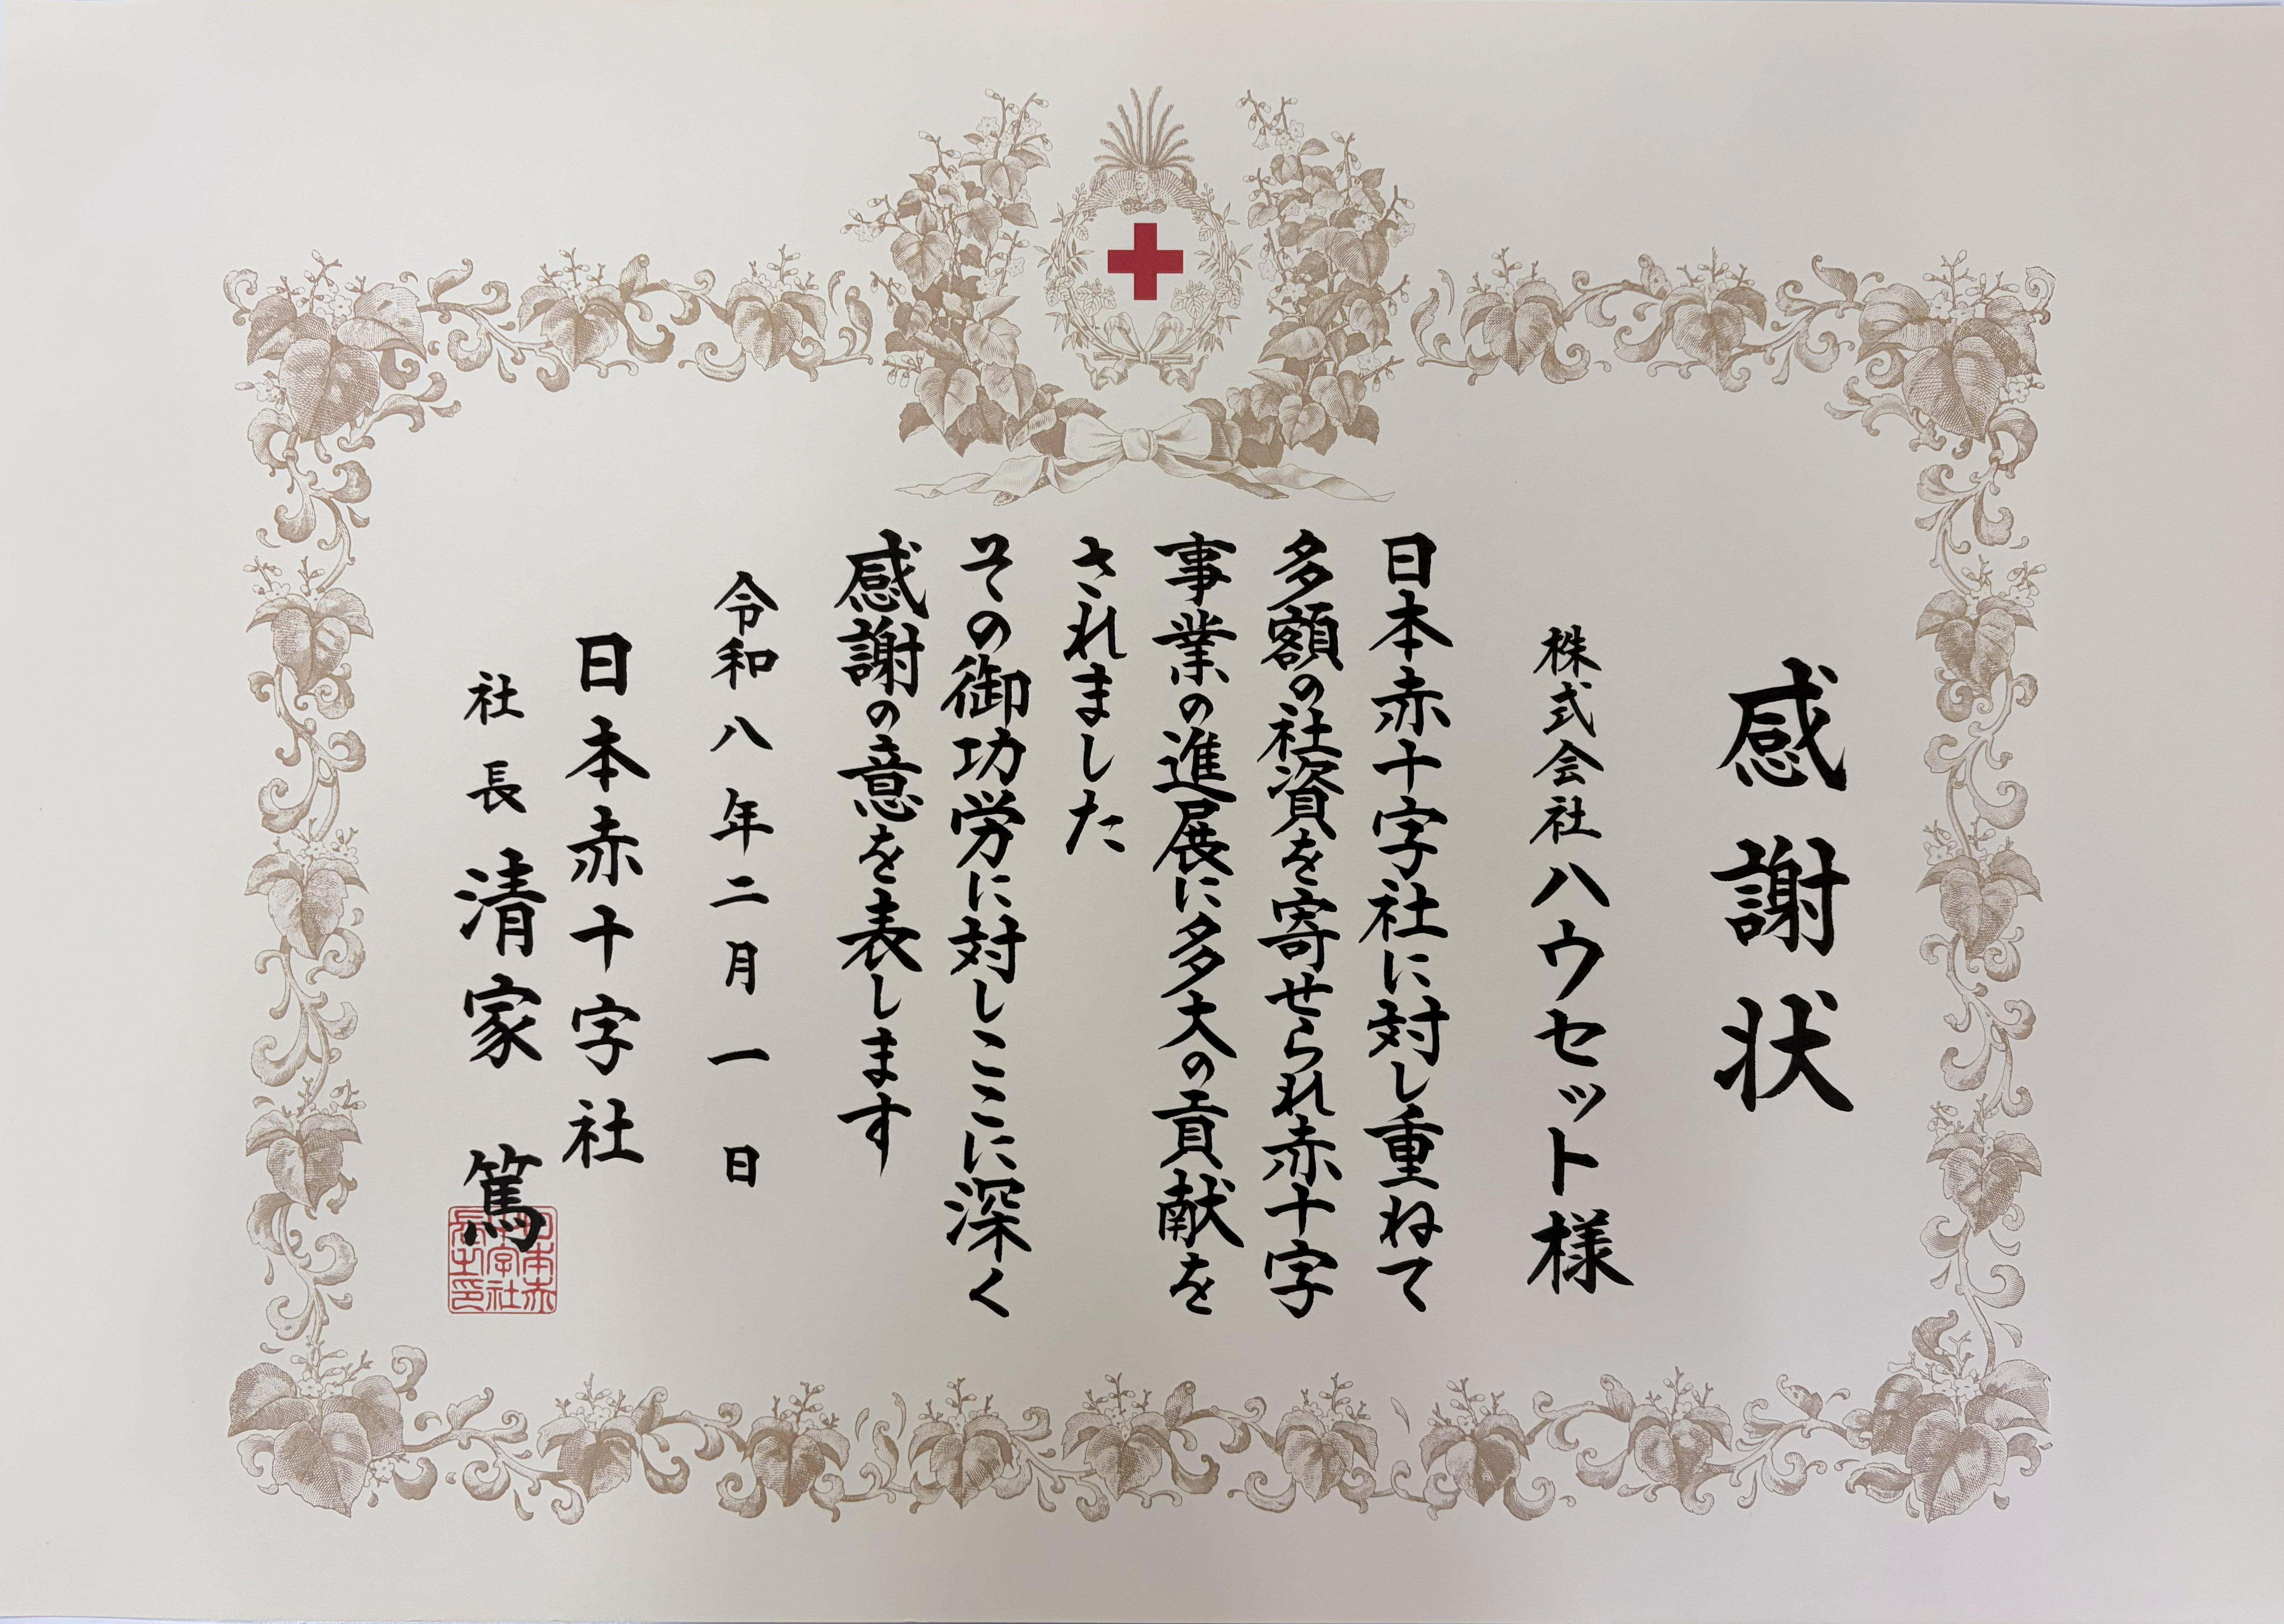 感謝状
株式会社ハウセット様
日本赤十字社に対し重ねて
多額の社資を寄せられ赤十字
事業の進展に多大の貢献を
されました
その御功労に対しここに深く
感謝の意を表します
令和八年二月一日
日本赤十字社
社長 清家 篤
日本赤
十字社
長之印